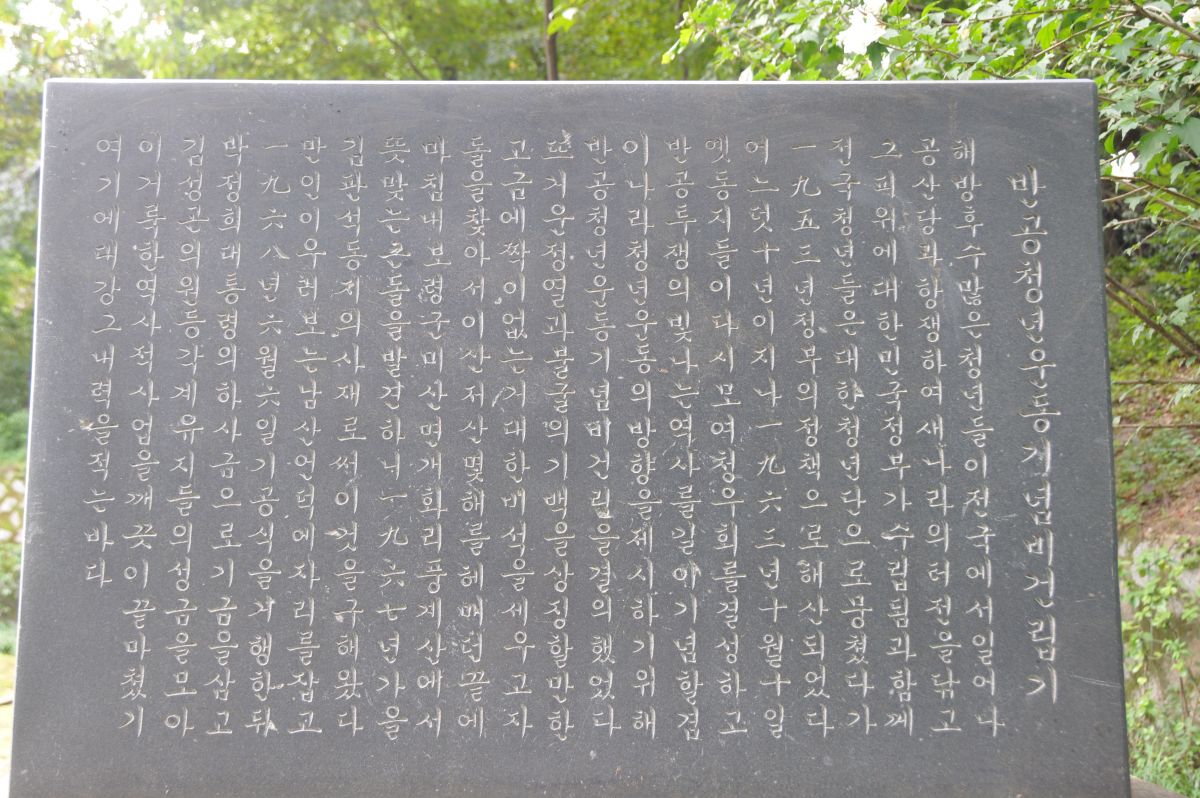 반공청년운동기념비건립기
해방후수많은청년들이전국에서일어나
공산당과항쟁하여새나라의터전을닦고
그피위에대한민국정부가수립됨과함께
전국청년들은대한청년단으로뭉쳤다가
一九五三년정부의정책으로해산되었다
어느덧十년이지나一九六三년十월十일
옛동지들이다시모여청우회를결성하고
반공투쟁의빛나는역사를길이기념할겸
이나라청년운동의방향을제시하기위해
반공청년운동기념비건립을결의했었다
뜨거운정열과불굴의기백을상징할만한
고금에짝이없는거대한배석을세우고자
돌을찾아서이산저산몇해를헤매던끝에
마침내보령군미산면개화리풍계산에서
뜻맞는큰돌을발견하니一九六七년가을
김판석동지의사재로써이것을구해왔다
만인이우러보는남산언덕에자리를잡고
一九六八년六월六일기공식을거행한뒤
박정희대통령의하사금으로기금을삼고
김성곤의원등각계유지들의성금을모아
이거룩한역사적사업을깨끗이끝마쳤기
여기에대강그내력을적는바다